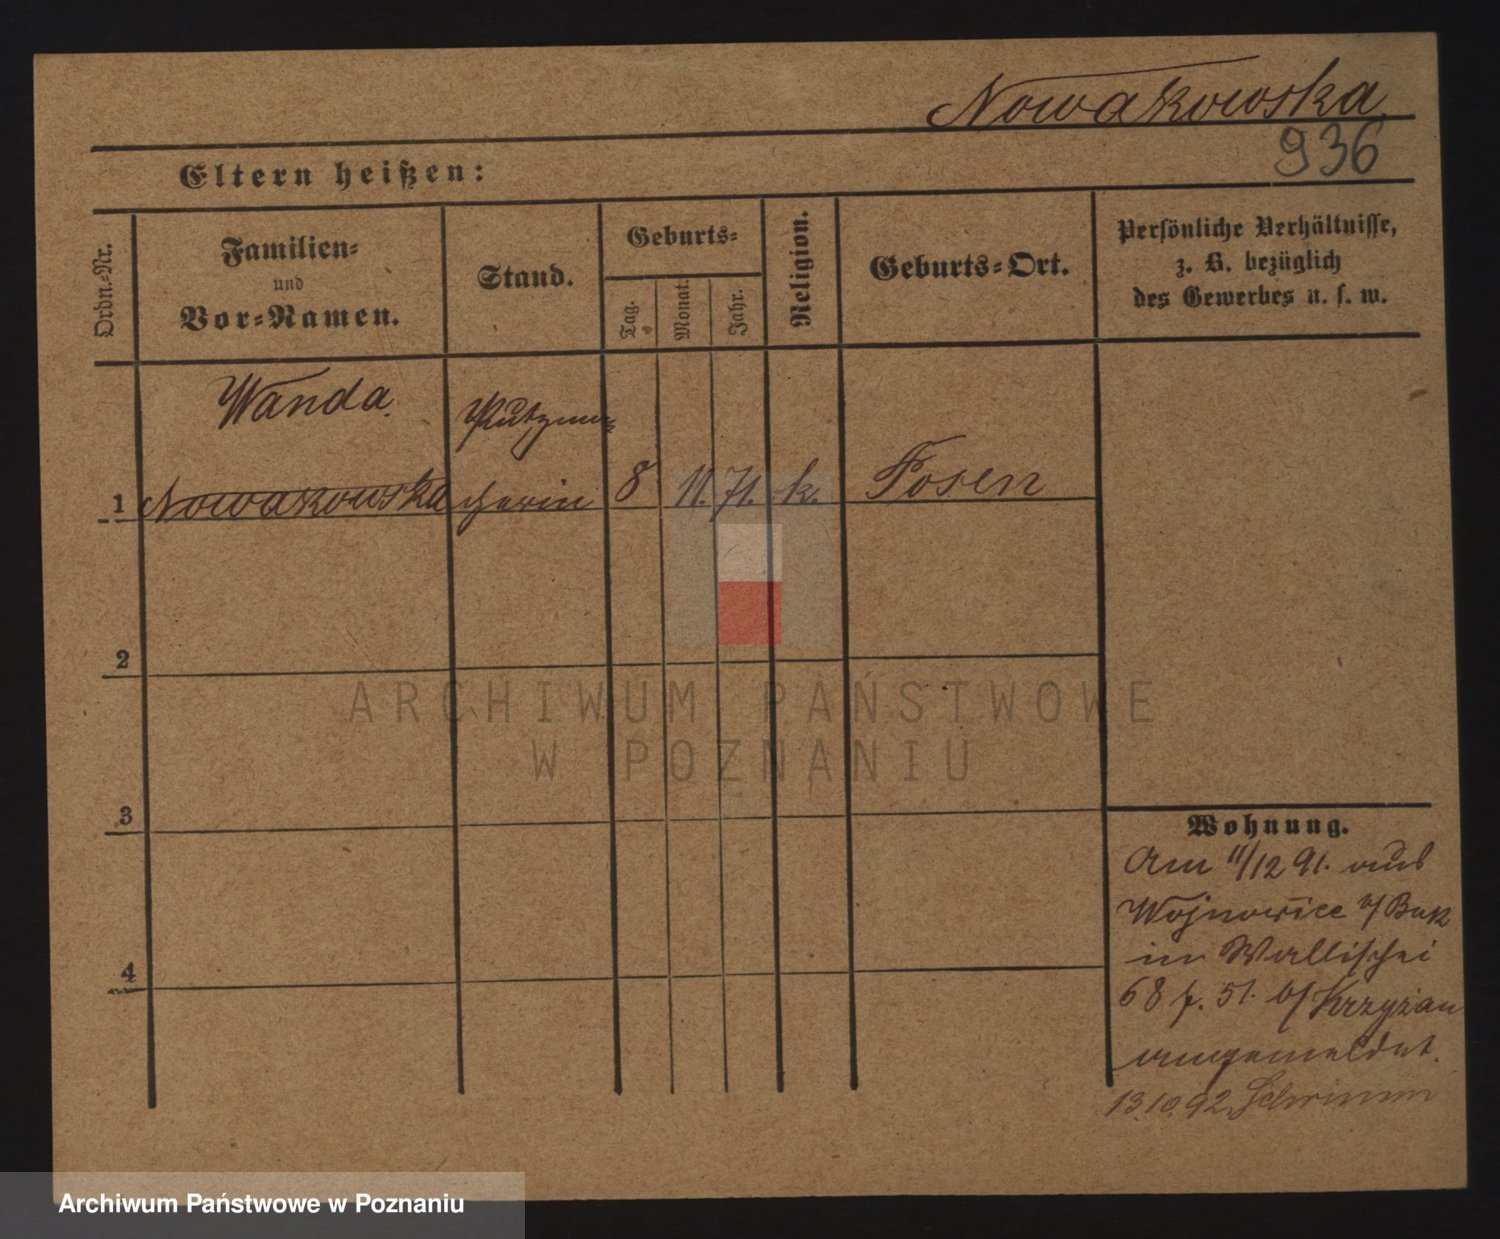 Nowakowska
936
Eltern heißen:
Ordn.-Nr.
Familien-
und
Vor-Namen.
Stand.
Geburts-
Tag.
Monat.
Jahr.
Religion.
Geburts-Ort.
Persönliche Verhältnisse,
z. B. bezüglich
des Gewerbes u. s. w.
Wanda
Putzma-
1 Nowakowska cherin 8 11. 71. k. Posen
2
3
4
Wohnung.
Am 11/12 91. aus
Wojnowice b/ Buk
in Wallischei
68 p. 51. b/ Krzyżan
angemeldet.
13.10.92 Schrimm
ARCHIWUM PAŃSTWOWE
W POZNANIU
Archiwum Państwowe w Poznaniu